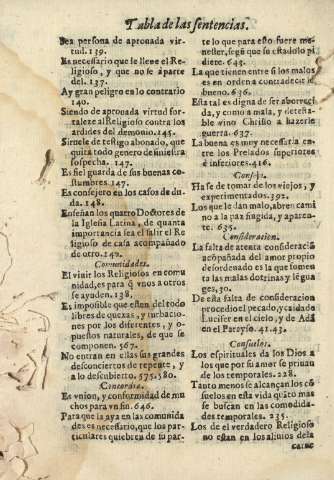 Tabla de las sentencias.
Sea persona de aprouada vir-
tud. 139.
Es necessario que le lleue el Re-
ligioso, y que no se aparte
del. 137.
Ay gran peligro en lo contrario
140.
Siendo de aprouada virtud for-
taleze al Religioso contra los
ardides del demonio. 145.
Siruele de testigo abonado, que
quita todo genero de siniestra
sospecha. 147.
Es fiel guarda de sus buenas cos-
tumbres. 147.
Es consejero en los casos de du-
da. 148.
Enseñan los quatro Doctores de
la Iglesia Latina, de quanta
importancia sea el salir el Re
ligioso de casa acompañado
de otro. 142.
Comunidades.
El viuir los Religiosos en comu
nidad, es para q̃ vnos a otros
se ayuden. 138.
Es impossible que esten del todo
libres de quexas, y turbacio-
nes por los diferentes, y o-
puestos naturales, de que se
componen. 567.
No entran en ellas sus grandes
desconciertos de repente, y
a lo descubierto. 575. 580.
Concordia.
Es vnion, y conformidad de mu
chos para vn fin. 646.
Para que la aya en las comunida
des es necessario, que los par-
ticulares quiebren de su par-
te lo que para esto fuere me-
nester, segũ que su estado lo pi
diere. 643.
La que tienen entre si los malos
es en orden a contradezir lo
bueno. 636.
Esta tal es digna de ser aborreci
da, y como a mala, y detesta-
ble vino Christo a hazerle
guerra. 637.
La buena es muy necessaria en-
tre los Prelados superiores
è inferiores. 416.
Consejo.
Hase de tomar de los viejos, y
experimentados. 392.
Los que le dan malo, abren cami
no a la paz fingida, y aparen-
te. 635.
Consideracion.
La falta de atenta consideraciõ
acõpañada del amor propio
desordenado es la que fomen
ta las malas dotrinas y lẽgu
ges, 30.
De esta falta de consideracion
procedio el pecado, y caidade
Lucifer en el cielo, y de Adã
en el Parayso. 41. 43.
Consuelos.
Los espirituales da los Dios a
los que por su amor se priuan
de los temporales. 228.
Tanto menos se alcançan los cõ
suelos en esta vida quãto mas
se buscan en las comodida-
des temporales. 235.
Los de el verdadero Religioso
no estan en los aliuios de la
carne